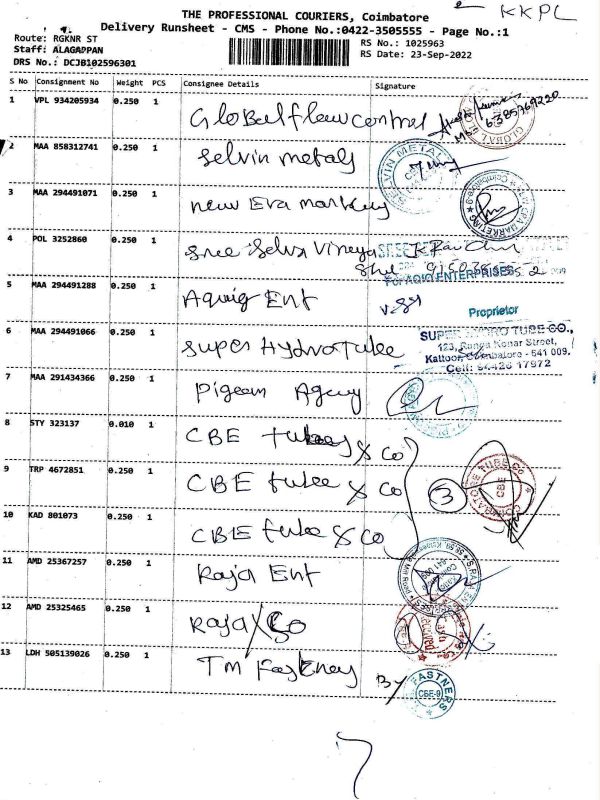 KKPL
THE PROFESSIONAL COURIERS, Coimbatore
Delivery Runsheet - CMS - Phone No.:0422-3505555 - Page No.:1
Route: RGKNR ST
Staff: ALAGAPPAN
DRS No.: DCJB102596301
RS No.: 1025963
RS Date: 23-Sep-2022
S No Consignment No Weight PCS Consignee Details Signature
1 VPL 934205934 0.250 1 Globalflowcontrol
6385769220
2 MAA 858312741 0.250 1 Selvin metals
SELVIN METAL
3 MAA 294491071 0.250 1 new Era markeg
4 POL 3252860 0.250 1 Sree Selva Vinaya
5 MAA 294491288 0.250 1 Aquig Ent
For AQIQ ENTERPRISES
Proprietor
6 MAA 294491066 0.250 1 Super Hydrotube
SUPER HYDRO TUBE CO.,
123, Ranga Konar Street,
Kattoor, Coimbatore - 641 009.
Cell: 94426 17972
7 MAA 291434366 0.250 1 Pigeon Agency
8 STY 323137 0.010 1 CBE tubes & Co
9 TRP 4672851 0.250 1 CBE tube & Co
3
COIMBATORE TUBE CO
CBE
10 KAD 801073 0.250 1 CBE tube & Co
11 AMD 25367257 0.250 1 Raja Ent
12 AMD 25325465 0.250 1 Raja & Co
13 LDH 505139026 0.250 1 TM Fastners
By
FASTNERS
CBE-9